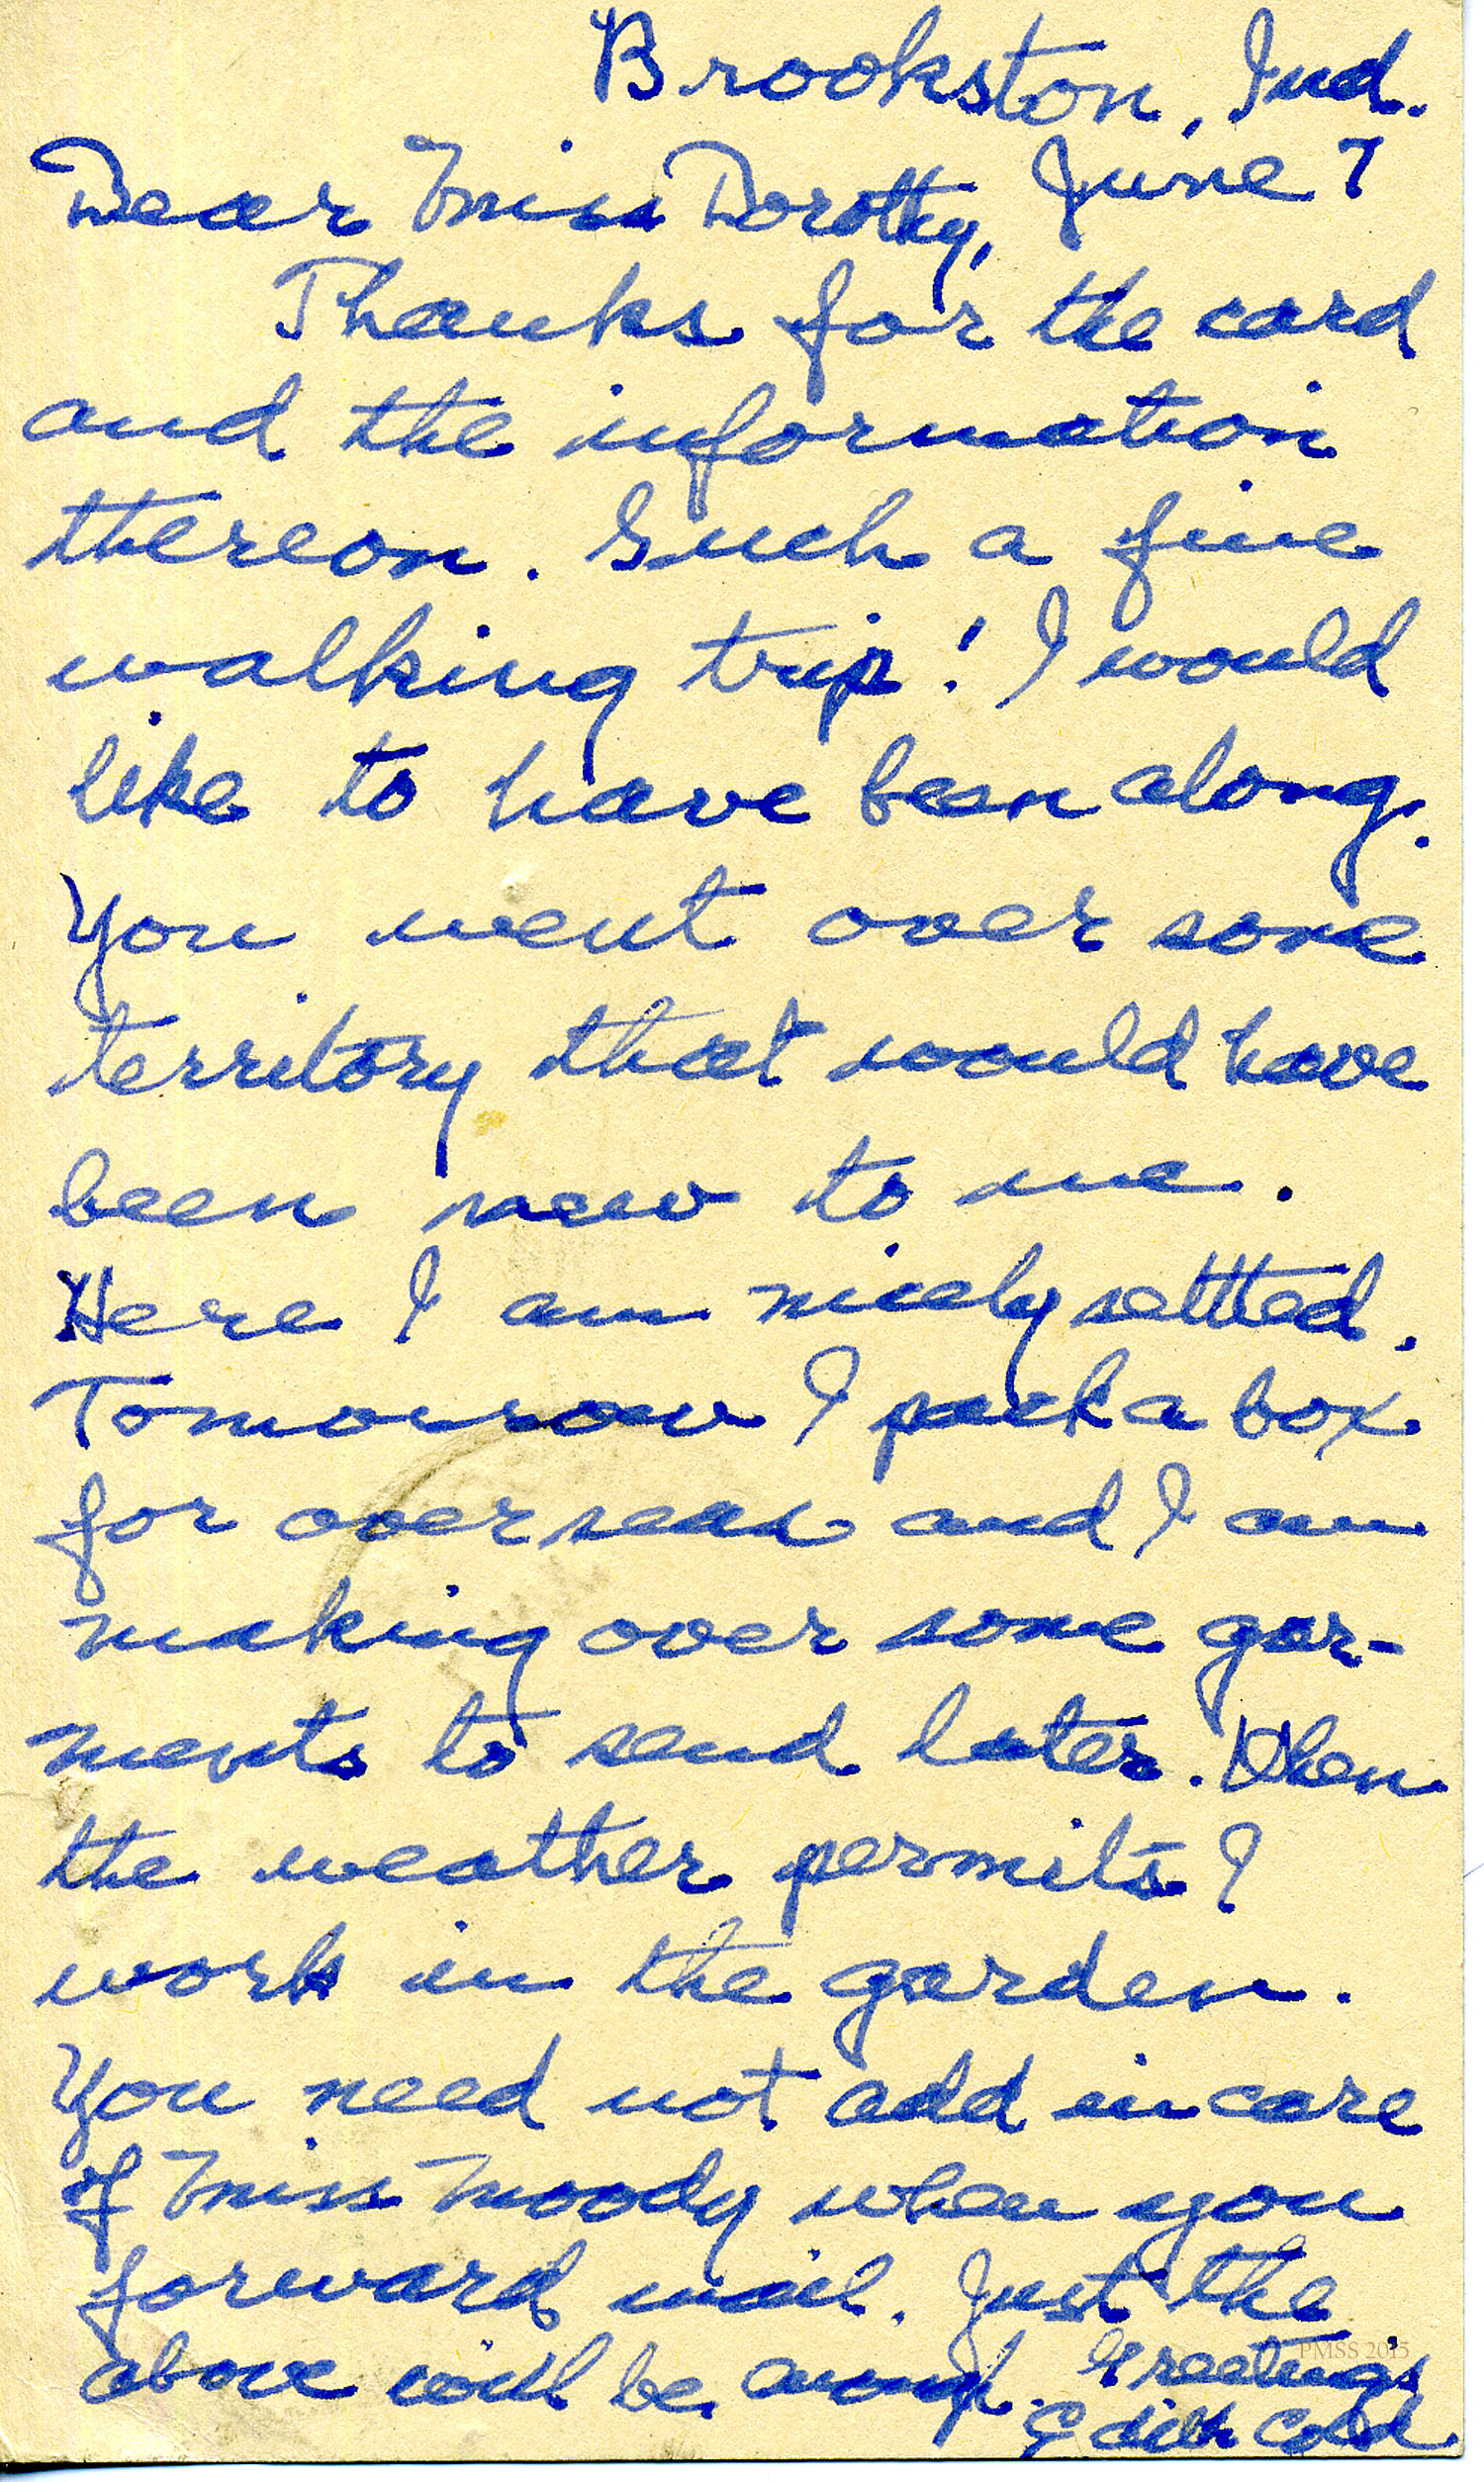 Brookston, Ind.
June 7
Dear Miss Dorothy,
Thanks for the card
and the information
thereon. Such a fine
walking trip! I would
like to have been along.
You went over some
territory that would have
been new to me.
Here I am nicely settled.
Tomorrow I pack a box
for overseas and I am
making over some gar-
ments to send later. When
the weather permits I
work in the garden.
You need not add in care
of Miss Moody when you
forward mail. Just the
above will be enough. Greetings
Edith Cold
PMSS 2015